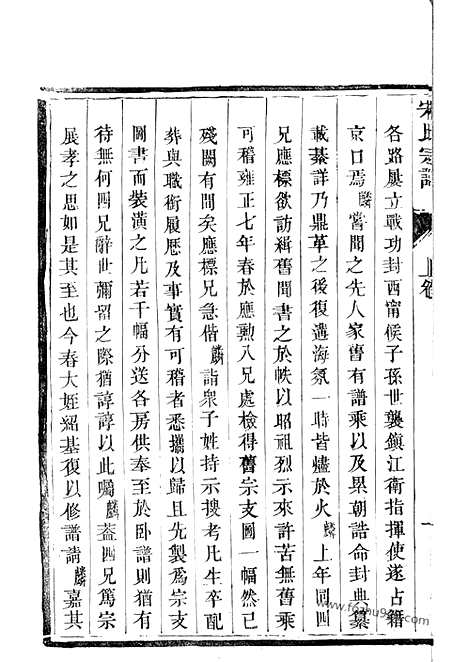 宋氏宗譜
上卷
一
各路屢立戰功封西甯候子孫世襲鎮江衛指揮使遂占籍
京口焉麟嘗聞之先人家舊有譜乘以及累朝誥命封典纂
載綦詳乃鼎革之後復遘海氛一時皆燼於火麟上年同四
兄應標欲訪緝舊聞書之於帙以昭祖烈示來許苦無舊乘
可稽雍正七年春於應勲八兄處檢得舊宗支圖一幅然已
殘闕有間矣應標兄急偕麟詣衆子姓持示搜考凡生卒配
葬與職銜履歷及事實有可稽者悉攟以歸且先製為宗支
圖書而裝潢之凡若干幅分送各房供奉至於卧譜則猶有
待無何四兄辭世彌留之際猶諄諄以此囑麟葢四兄篤宗
展孝之思如是其至也今春大姪紹基復以修譜請麟嘉其